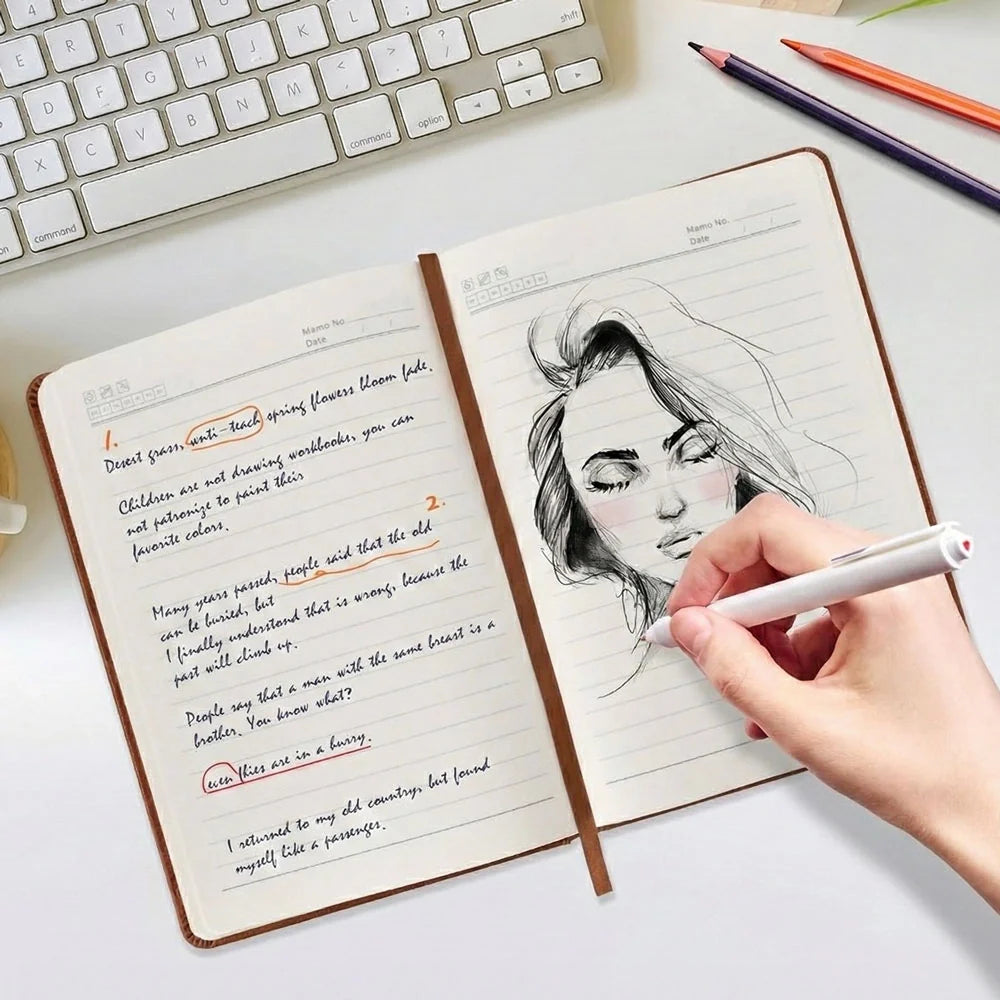 4
L
;
shift
E
R
T
Y
J
K
D
F
G
H
M
<
>
?
/
X
C
V
B
N
command
option
command
Mamo No
Date
1.
Desert grass, wnti-teach spring flowers bloom fade.
Children are not drawing workbooks, you can
not patronize to paint their
favorite colors.
2.
Many years passed, people said that the old
can be buried, but
I finally understand that is wrong, because the
past will climb up.
People say that a man with the same breast is a
brother. You know what?
even thies are in a hurry.
I returned to my old country, but found
myself like a passenger.
Mamo No.
Date